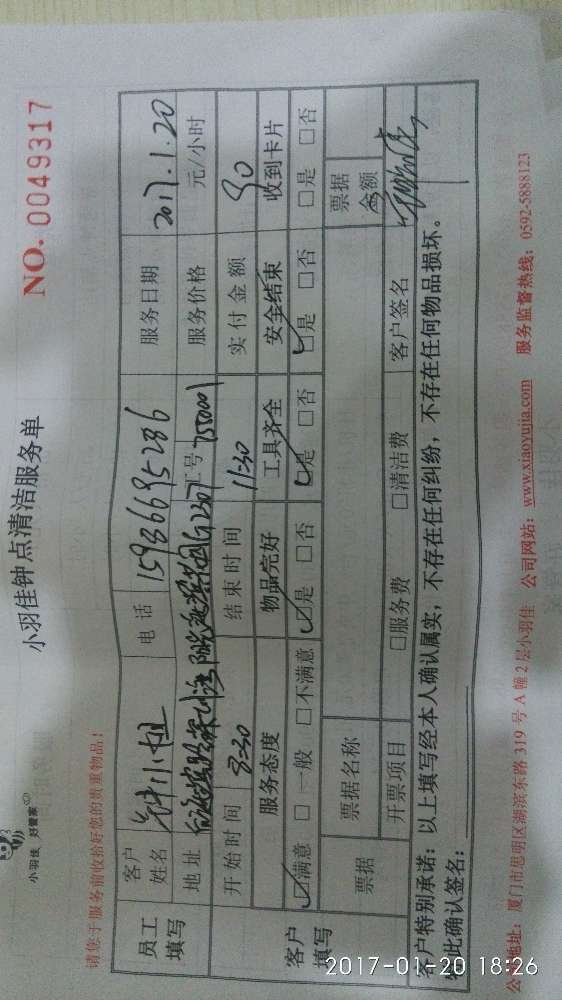 小羽佳 好管家
小羽佳钟点清洁服务单
NO. 0049317
请您于服务前收拾好您的贵重物品！
员工填写 客户姓名 小姐 电话 15986695286 服务日期 2017.1.20
地址 工号 755001 服务价格 元/小时
开始时间 8:30 结束时间 11:30 实付金额 90
客户填写 服务态度 物品完好 工具齐全 安全结束 收到卡片
☑满意 □一般 □不满意 ☑是 □否 ☑是 □否 ☑是 □否 □是 □否
票据 票据名称 票据金额
开票项目 □服务费 □清洁费 客户签名
客户特别承诺：以上填写经本人确认属实，不存在任何纠纷，不存在任何物品损坏。
特此确认签名：
公司地址：厦门市思明区湖滨东路 319 号 A 幢 2 层小羽佳 公司网站：www.xiaoyujia.com 服务监督热线：0592-5888123
2017-01-20 18:26